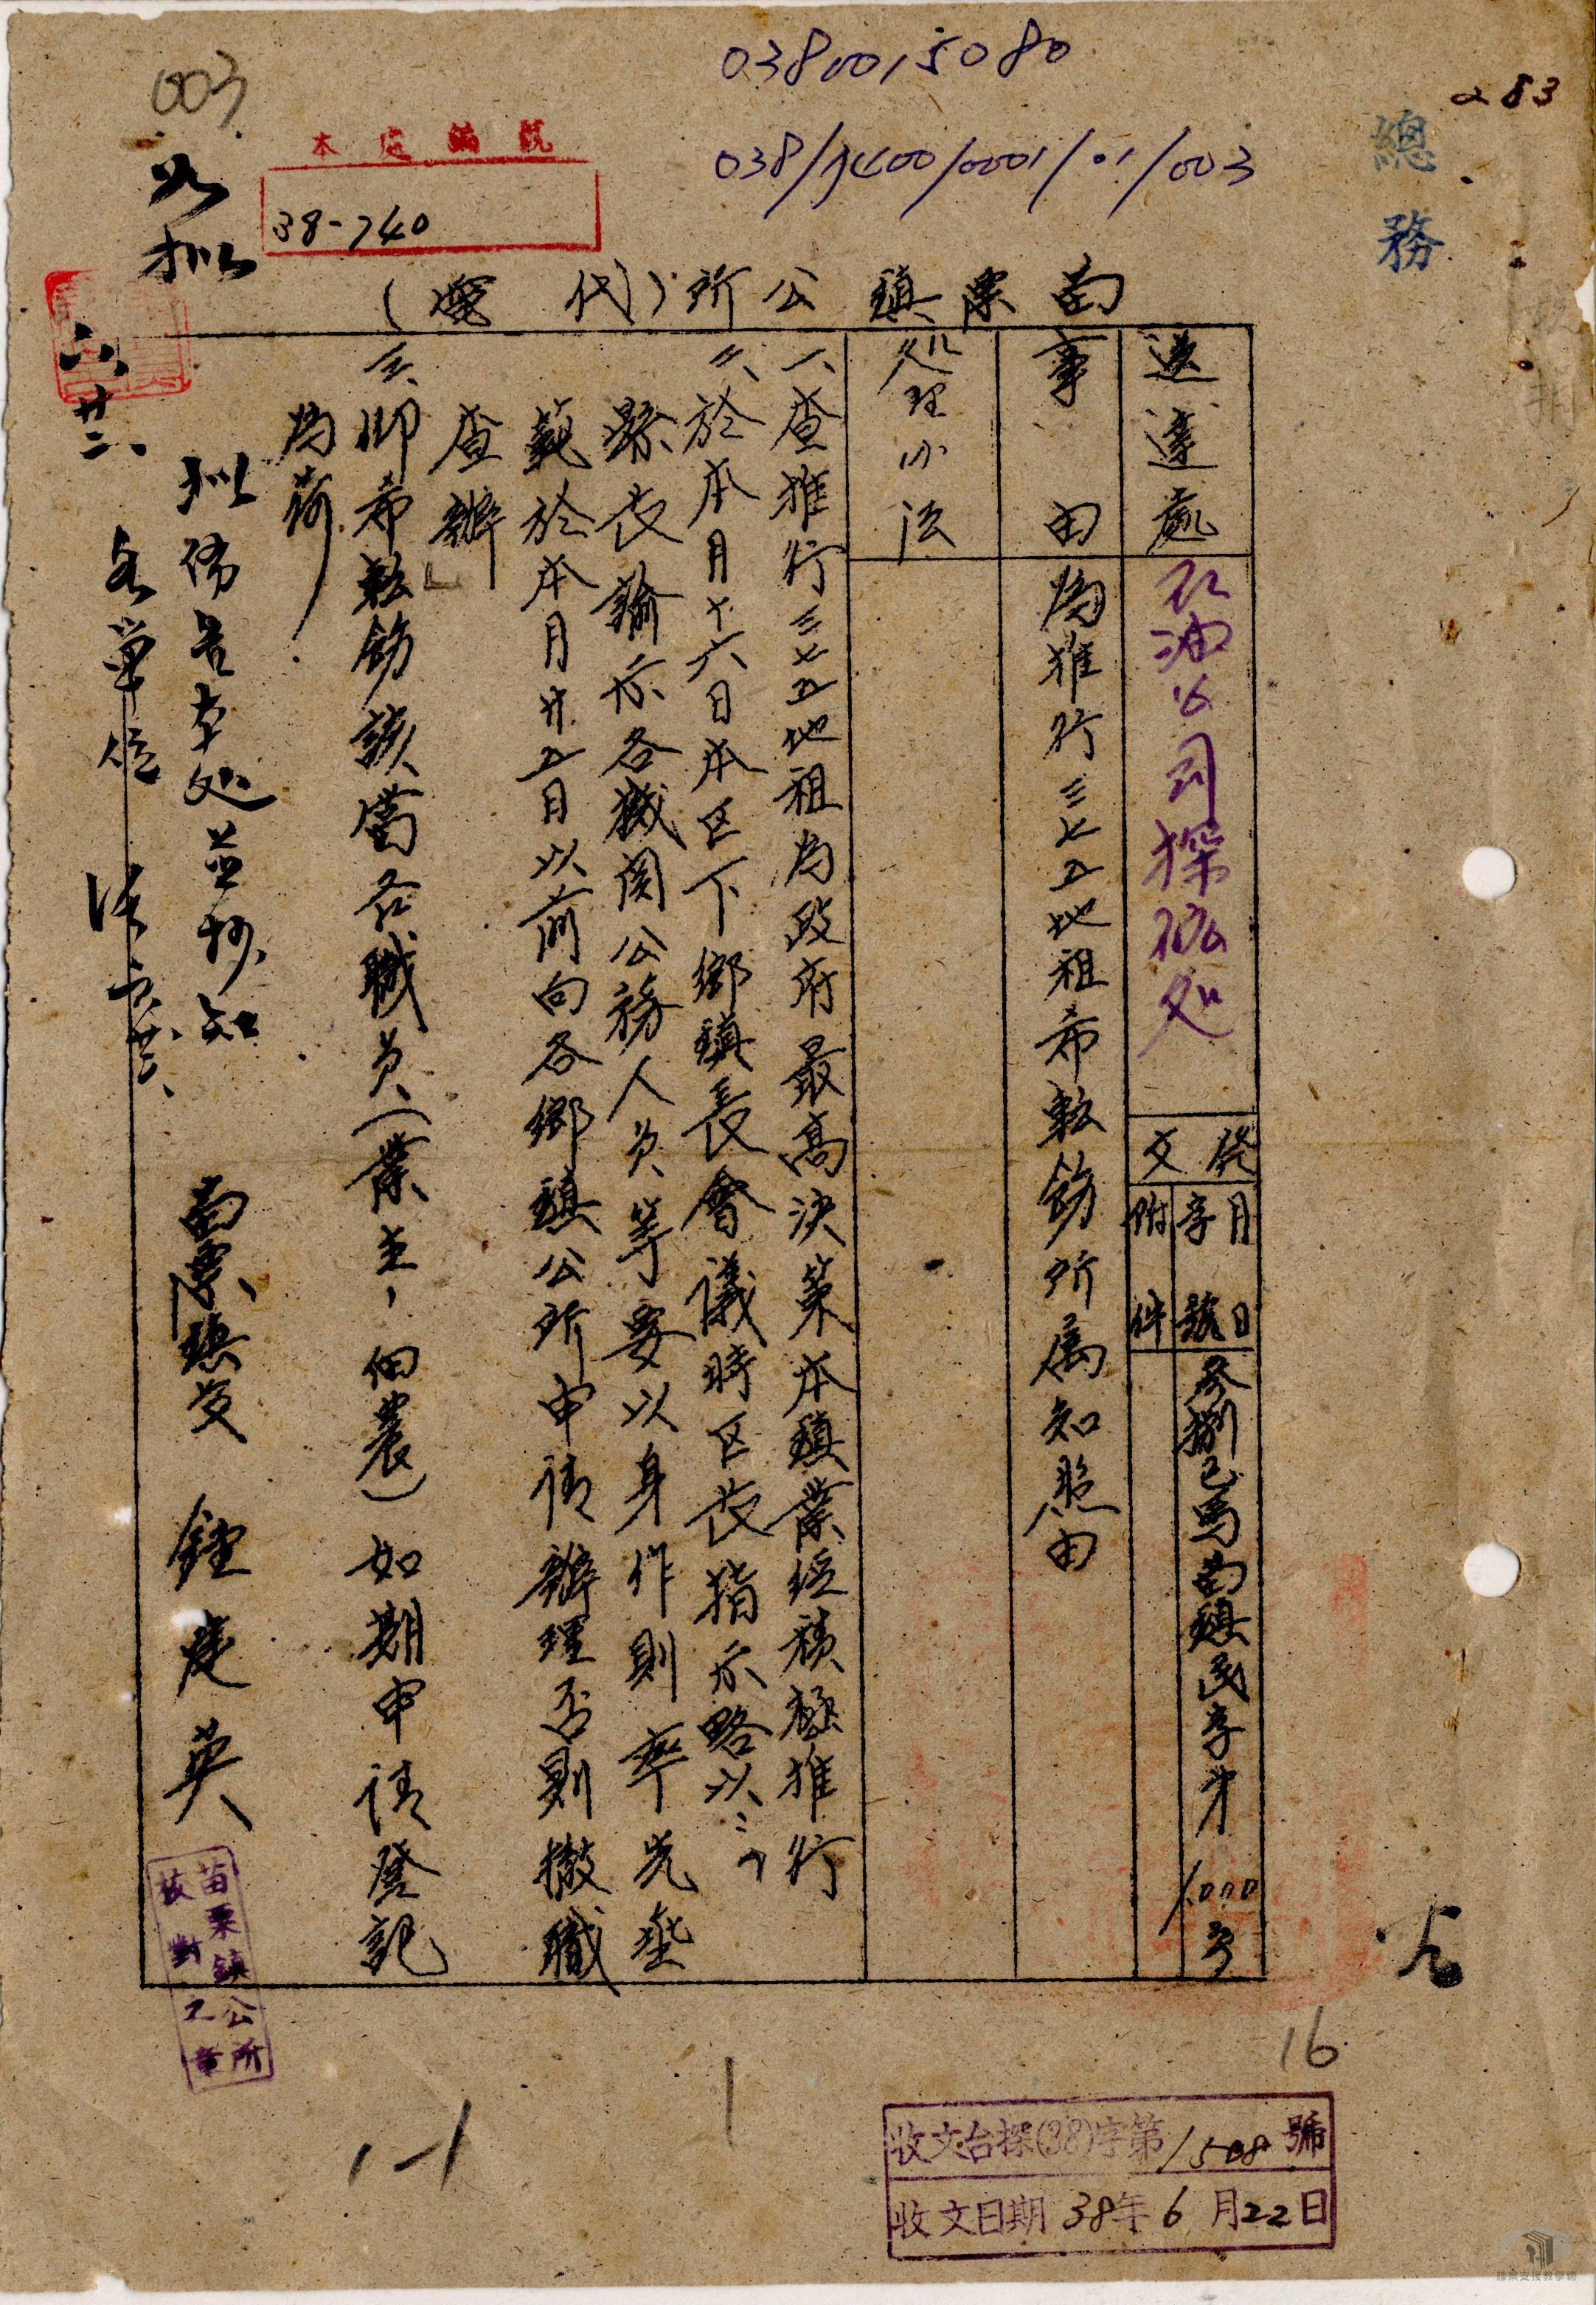 003
0380015080
038/7400/0001/01/003
283
總務
本處編號
38-740
苗栗鎮公所（代電）
送達處
石油公司探礦處
發文
月日
字號
附件
參捌巳馬苗鎮民字第1,000号
事由
為推行三七五地租希転飭所属知照由
処理办法
一、查推行三七五地租為政府最高決策本鎮業経積極推行
二、於本月十六日本区下鄉鎮長會議時区長指示略以：「
縣長諭示各機関公務人員等要以身作則率先垂
範於本月廿五日以前向各鄉鎮公所申請辦理否則撤職
查辦」
三、即希転飭該當各職員（業主，佃農）如期申請登記
為荷
苗栗鎮長 鍾建英
苗栗鎮公所
校對之章
擬佈告本処並抄知
各單位
六廿二
如擬
六廿二
16
1
1-1
收文台探(38)字第1508號
收文日期38年6月22日
檔案支援教學網